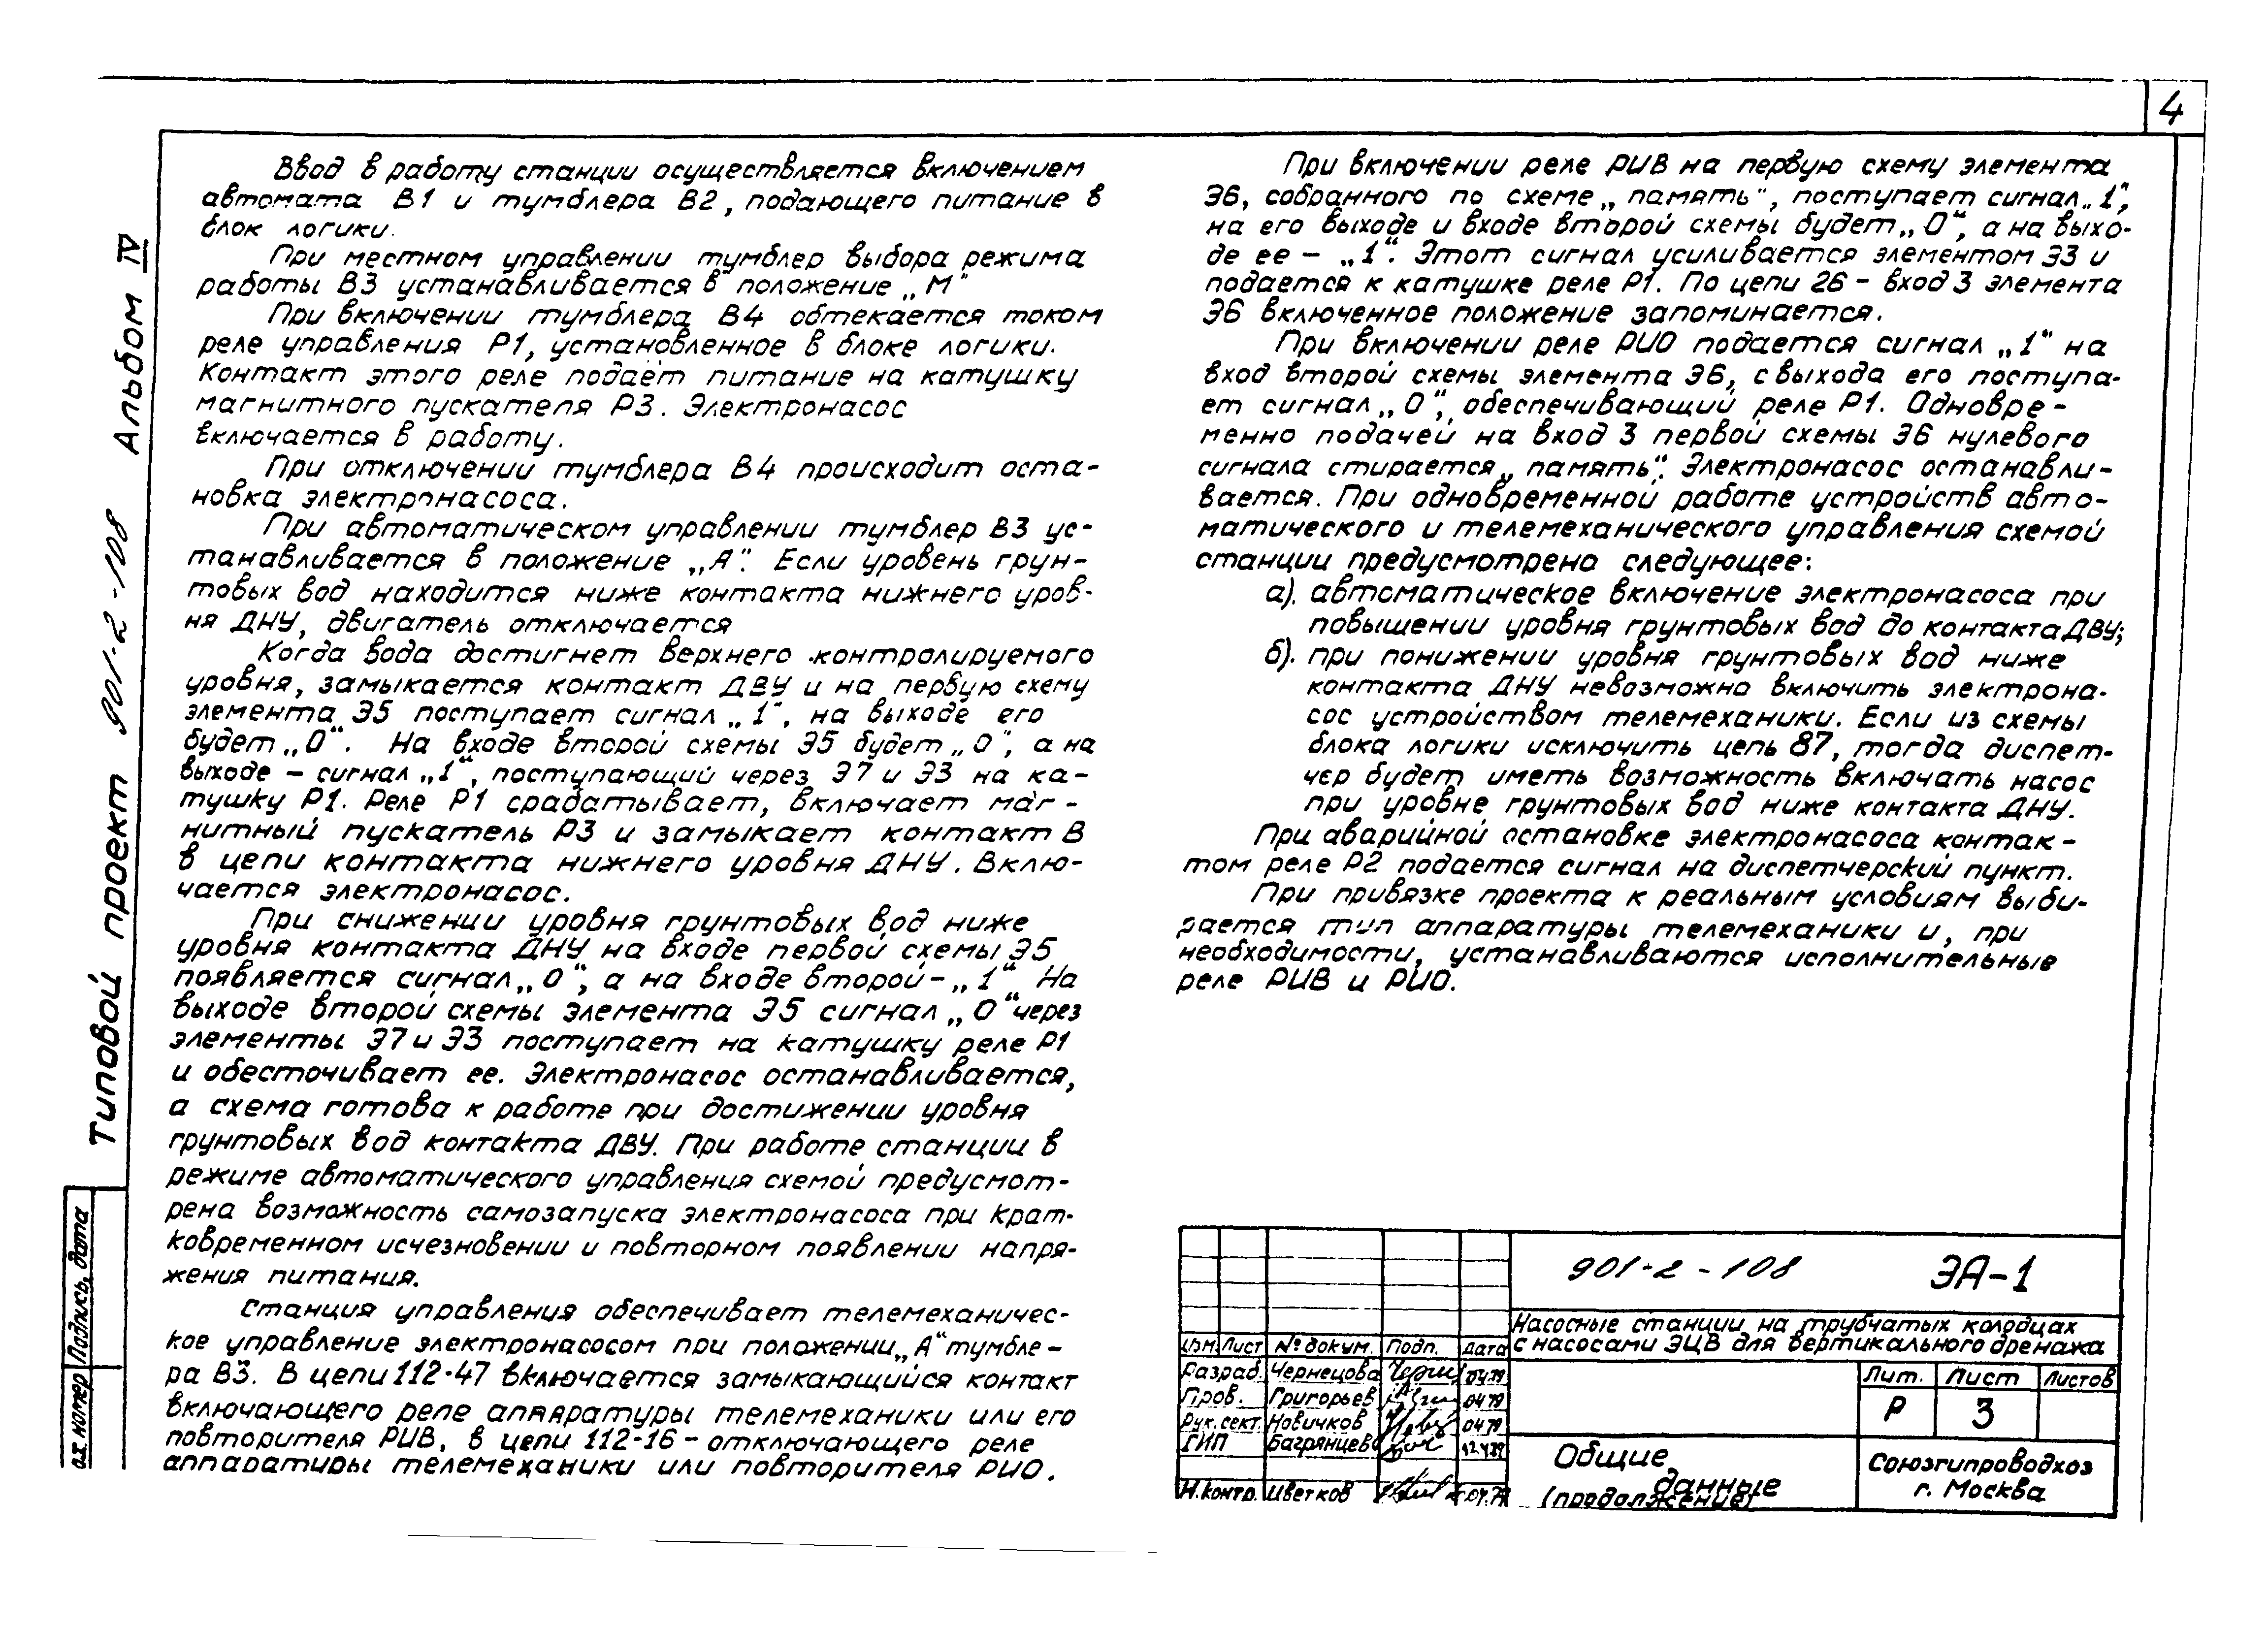 4
Ввод в работу станции осуществляется включением
автомата В1 и тумблера В2, подающего питание в
блок логики.
При местном управлении тумблер выбора режима
работы В3 устанавливается в положение „М"
При включении тумблера В4 обтекается током
реле управления Р1, установленное в блоке логики.
Контакт этого реле подаёт питание на катушку
магнитного пускателя Р3. Электронасос
включается в работу.
При отключении тумблера В4 происходит оста-
новка электронасоса.
При автоматическом управлении тумблер В3 ус-
танавливается в положение „А". Если уровень грун-
товых вод находится ниже контакта нижнего уров-
ня ДНУ, двигатель отключается
Когда вода достигнет верхнего контролируемого
уровня, замыкается контакт ДВУ и на первую схему
элемента Э5 поступает сигнал „1", на выходе его
будет „0". На входе второй схемы Э5 будет „0", а на
выходе – сигнал „1", поступающий через Э7 и Э3 на ка-
тушку Р1. Реле Р1 срабатывает, включает маг-
нитный пускатель Р3 и замыкает контакт В
в цепи контакта нижнего уровня ДНУ. Вклю-
чается электронасос.
При снижении уровня грунтовых вод ниже
уровня контакта ДНУ на входе первой схемы Э5
появляется сигнал „0", а на входе второй – „1" На
выходе второй схемы элемента Э5 сигнал „0" через
элементы Э7 и Э3 поступает на катушку реле Р1
и обесточивает ее. Электронасос останавливается,
а схема готова к работе при достижении уровня
грунтовых вод контакта ДВУ. При работе станции в
режиме автоматического управления схемой предусмот-
рена возможность самозапуска электронасоса при крат-
ковременном исчезновении и повторном появлении напря-
жения питания.
Станция управления обеспечивает телемеханичес-
кое управление электронасосом при положении „А" тумбле-
ра В3. В цепи 112-47 включается замыкающийся контакт
включающего реле аппаратуры телемеханики или его
повторителя РИВ, в цепи 112-16 – отключающего реле
аппаратуры телемеханики или повторителя РИО.
При включении реле РИВ на первую схему элемента
Э6, собранного по схеме „память", поступает сигнал „1",
на его выходе и входе второй схемы будет „0", а на выхо-
де ее – „1". Этот сигнал усиливается элементом Э3 и
подается к катушке реле Р1. По цепи 26 – вход 3 элемента
Э6 включенное положение запоминается.
При включении реле РИО подается сигнал „1" на
вход второй схемы элемента Э6, с выхода его поступа-
ет сигнал „0", обеспечивающий реле Р1. Одновре-
менно подачей на вход 3 первой схемы Э6 нулевого
сигнала стирается „память". Электронасос останавли-
вается. При одновременной работе устройств авто-
матического и телемеханического управления схемой
станции предусмотрено следующее:
а). автоматическое включение электронасоса при
повышении уровня грунтовых вод до контакта ДВУ;
б). при понижении уровня грунтовых вод ниже
контакта ДНУ невозможно включить электрона-
сос устройством телемеханики. Если из схемы
блока логики исключить цепь 87, тогда диспет-
чер будет иметь возможность включать насос
при уровне грунтовых вод ниже контакта ДНУ.
При аварийной остановке электронасоса контак-
том реле Р2 подается сигнал на диспетчерский пункт.
При привязке проекта к реальным условиям выби-
рается тип аппаратуры телемеханики и, при
необходимости, устанавливаются исполнительные
реле РИВ и РИО.
Типовой проект 901-2-108 Альбом IV
Подпись, дата
901-2-108 ЭА-1
Насосные станции на трубчатых колодцах
с насосами ЭЦВ для вертикального дренажа
Изм. Лист № докум. Подп. Дата
Разраб. Чернецова 04.79
Пров. Григорьев 04.79
Рук. сект. Новичков 04.79
ГИП Багрянцев
Н. контр. Цветков 04.79
Лит. Лист Листов
Р 3
Общие
данные
(продолжение)
Союзгипроводхоз
г. Москва